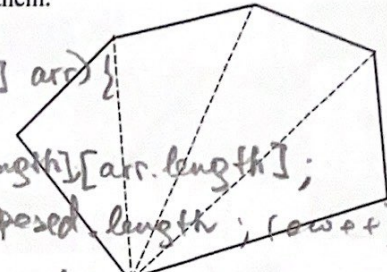 them.
] arr) {
ngth][arr.length];
posed.length; row++